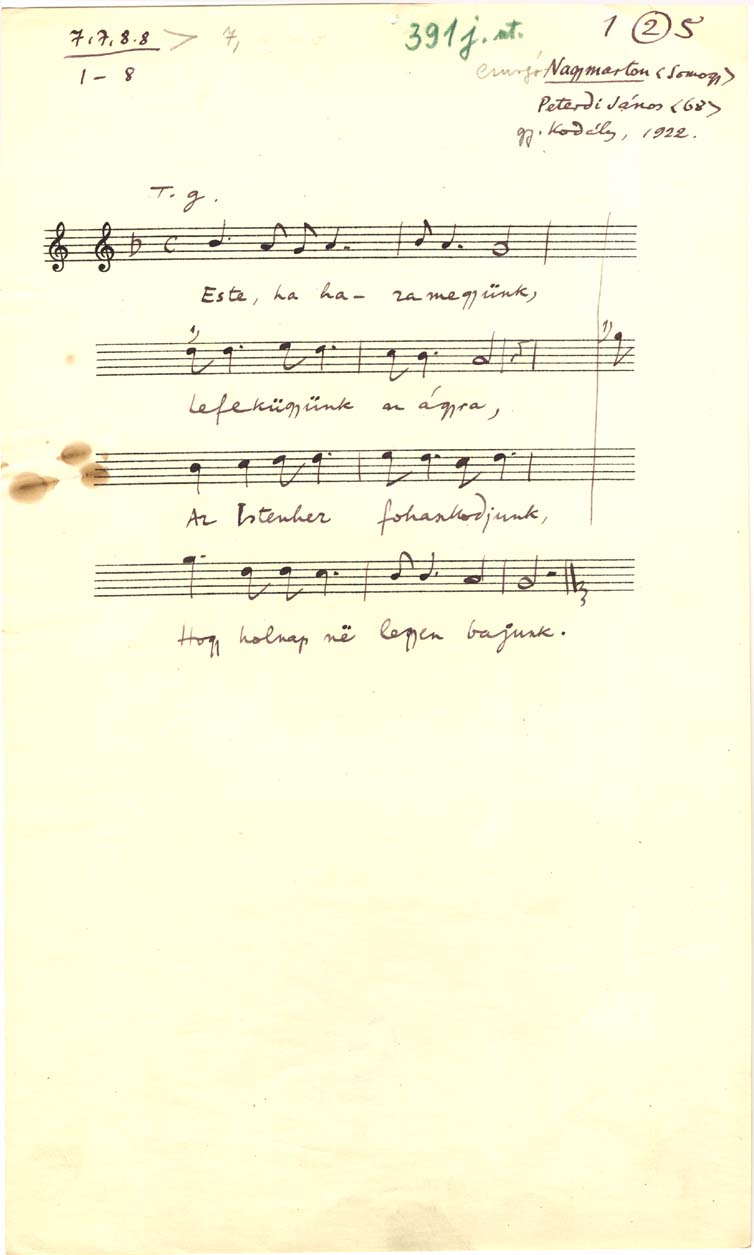 7.7.8.8 > 7,
1 – 8
391 j. st.
1 ② 5
Csurgó Nagymarton <Somogy>
Péterdi János <68>
gy. Kodály, 1922.
T. g.
Este, ha ha- za megyünk,
1)
1)
Lefekügyünk az ágyra,
Az Istenhez fohászkodjunk,
Hogy holnap në legyen bajunk.